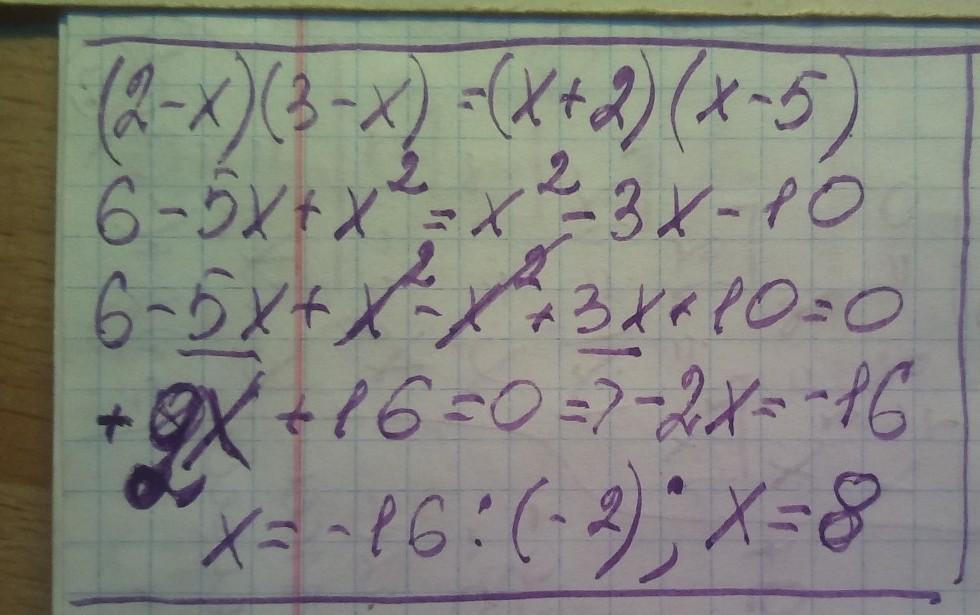 (2-x)(3-x) =(x+2)(x-5)
6-5x+x²=x²-3x-10
6-5x+x²-x²+3x+10=0
+2x+16=0=>-2x=-16
x=-16:(-2); x=8